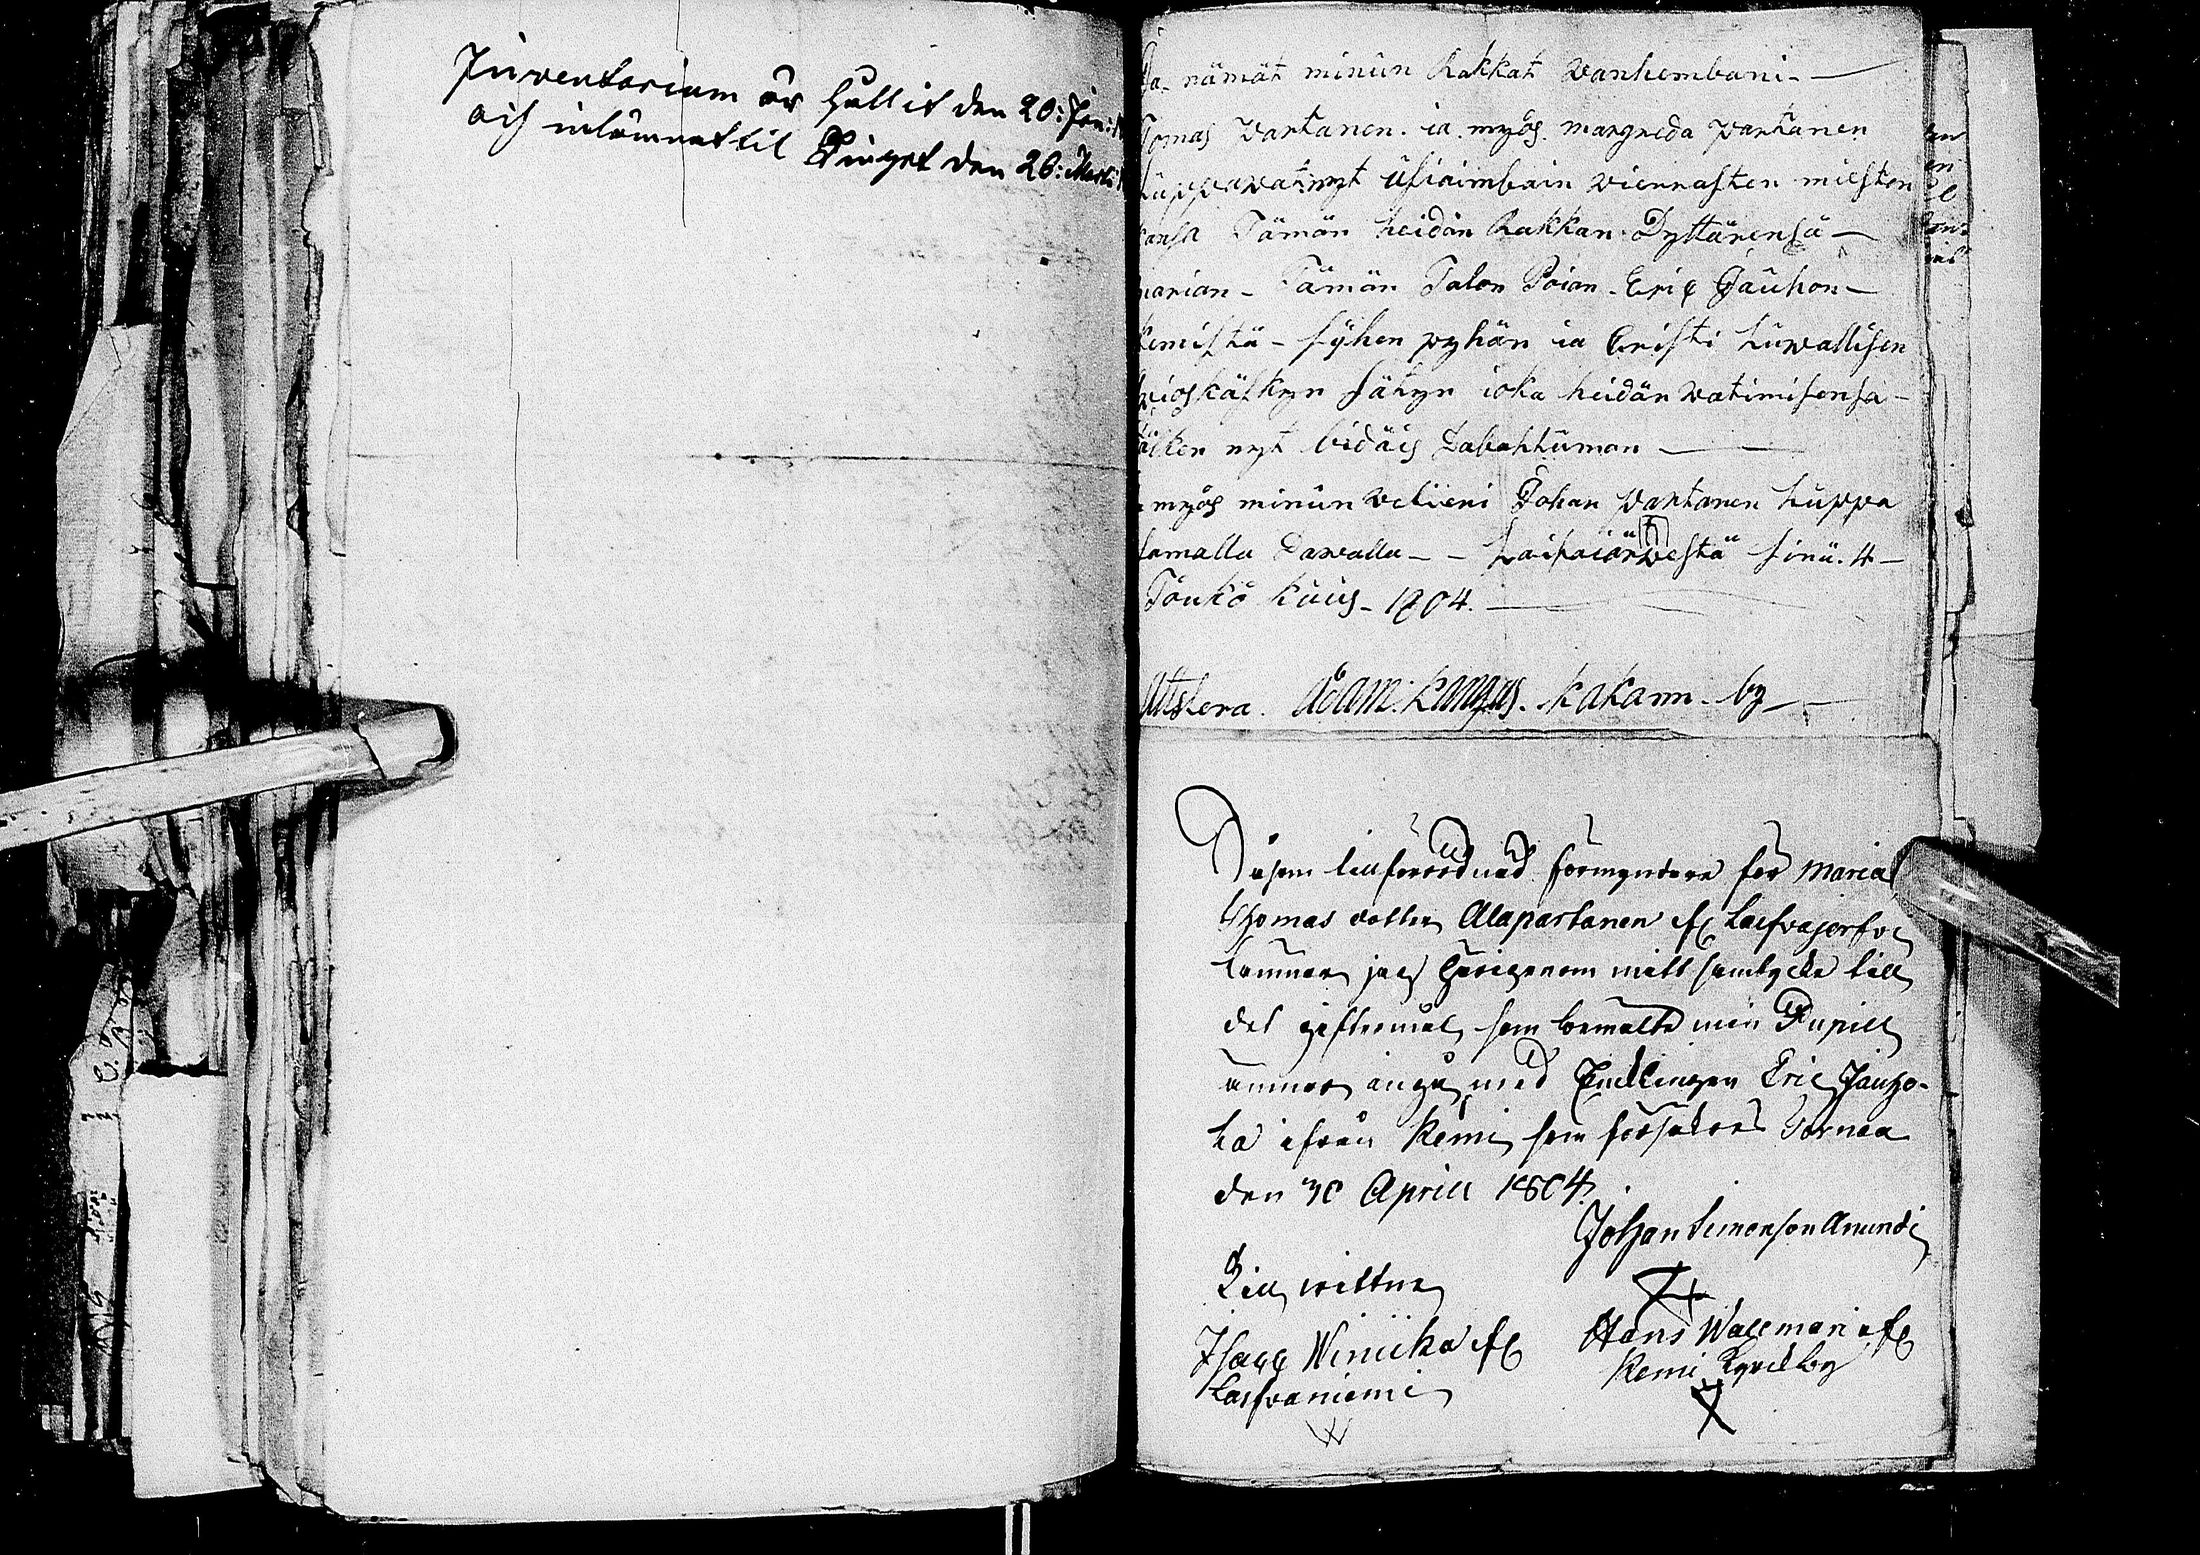 Inventarium är hållit den 20: Jan:
och inlämnat til Tinget den 26: Marti
Ja nämät minun Rakkat vanhembani
Tomas Partanen. ia myös margreda partanen
Luppawat nyt usiaimbain vierasten miesten
kansa Tämän heidän Rakkan Tyttärensä
marian Tämän Talon Poian Eric Jauhon
kemistä syhen pyhän ia Cristi Luwallisen
awioskäskyn sätyn ioka heidän vatimisensa
iälken nyt bidäis Tabahtuman
myös minun veliieni Johan partanen Luppa
samalla Tawalla Laiwaiärwestä sinä. 4
Touko kuus 1804.
Utstera. Adam. Kangas. kakam by
Såsom tillförordnad förmyndare för Maria
Thomas dotter Alapartanen if Laifvajerfvi
lemnar jag härigenom mitt samtycke till
det giftermål som bemälte min Pupill
ärnar ingå med Ynglingen Eric Jauho-
la ifrån Kemi som försäkras Tornea
den 30 Aprill 1804.
Johan Simonson Arundi
Till wittne
Isacc Niniika if
Laifvaniemi
Hans Wallmari if
Kemi Kyrckby